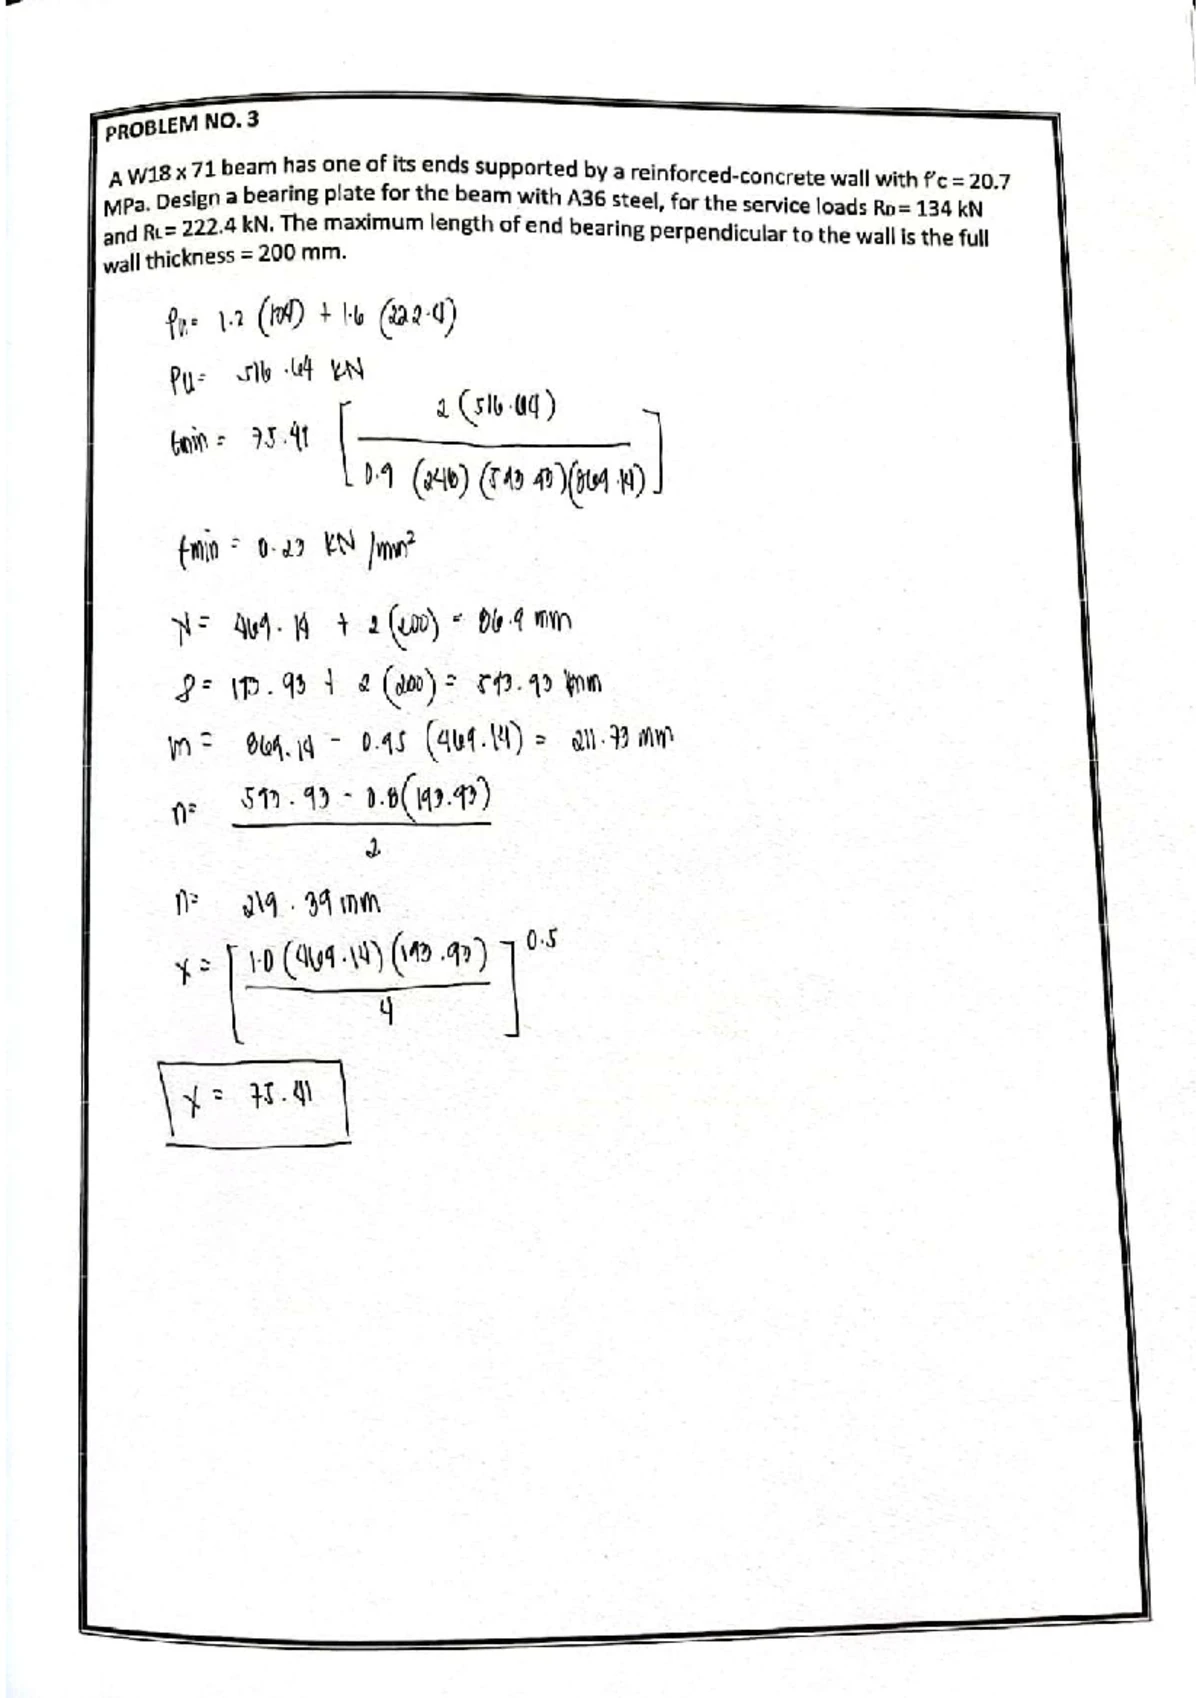 PROBLEM NO. 3
A W18 x 71 beam has one of its ends supported by a reinforced-concrete wall with f'c = 20.7
MPa. Design a bearing plate for the beam with A36 steel, for the service loads RD= 134 kN
and RL= 222.4 kN. The maximum length of end bearing perpendicular to the wall is the full
wall thickness = 200 mm.
Pu= 1.2 (134) + 1.6 (222.4)
Pu= 516.64 KN
tmin = 75.41 [ 2 (516.64)
0.9 (248) (593.93)(869.14) ]
tmin = 0.23 KN /mm²
N= 469.14 + 2 (200) = 86.9 mm
B= 193.93 + 2 (200) = 593.93 mm
m= 869.14 - 0.95 (469.14) = 211.73 mm
n= 593.93 - 0.8(193.93)
2
n= 219.39 mm
x = [ 1.0 (469.14) (193.93) ] 0.5
4
x = 75.41